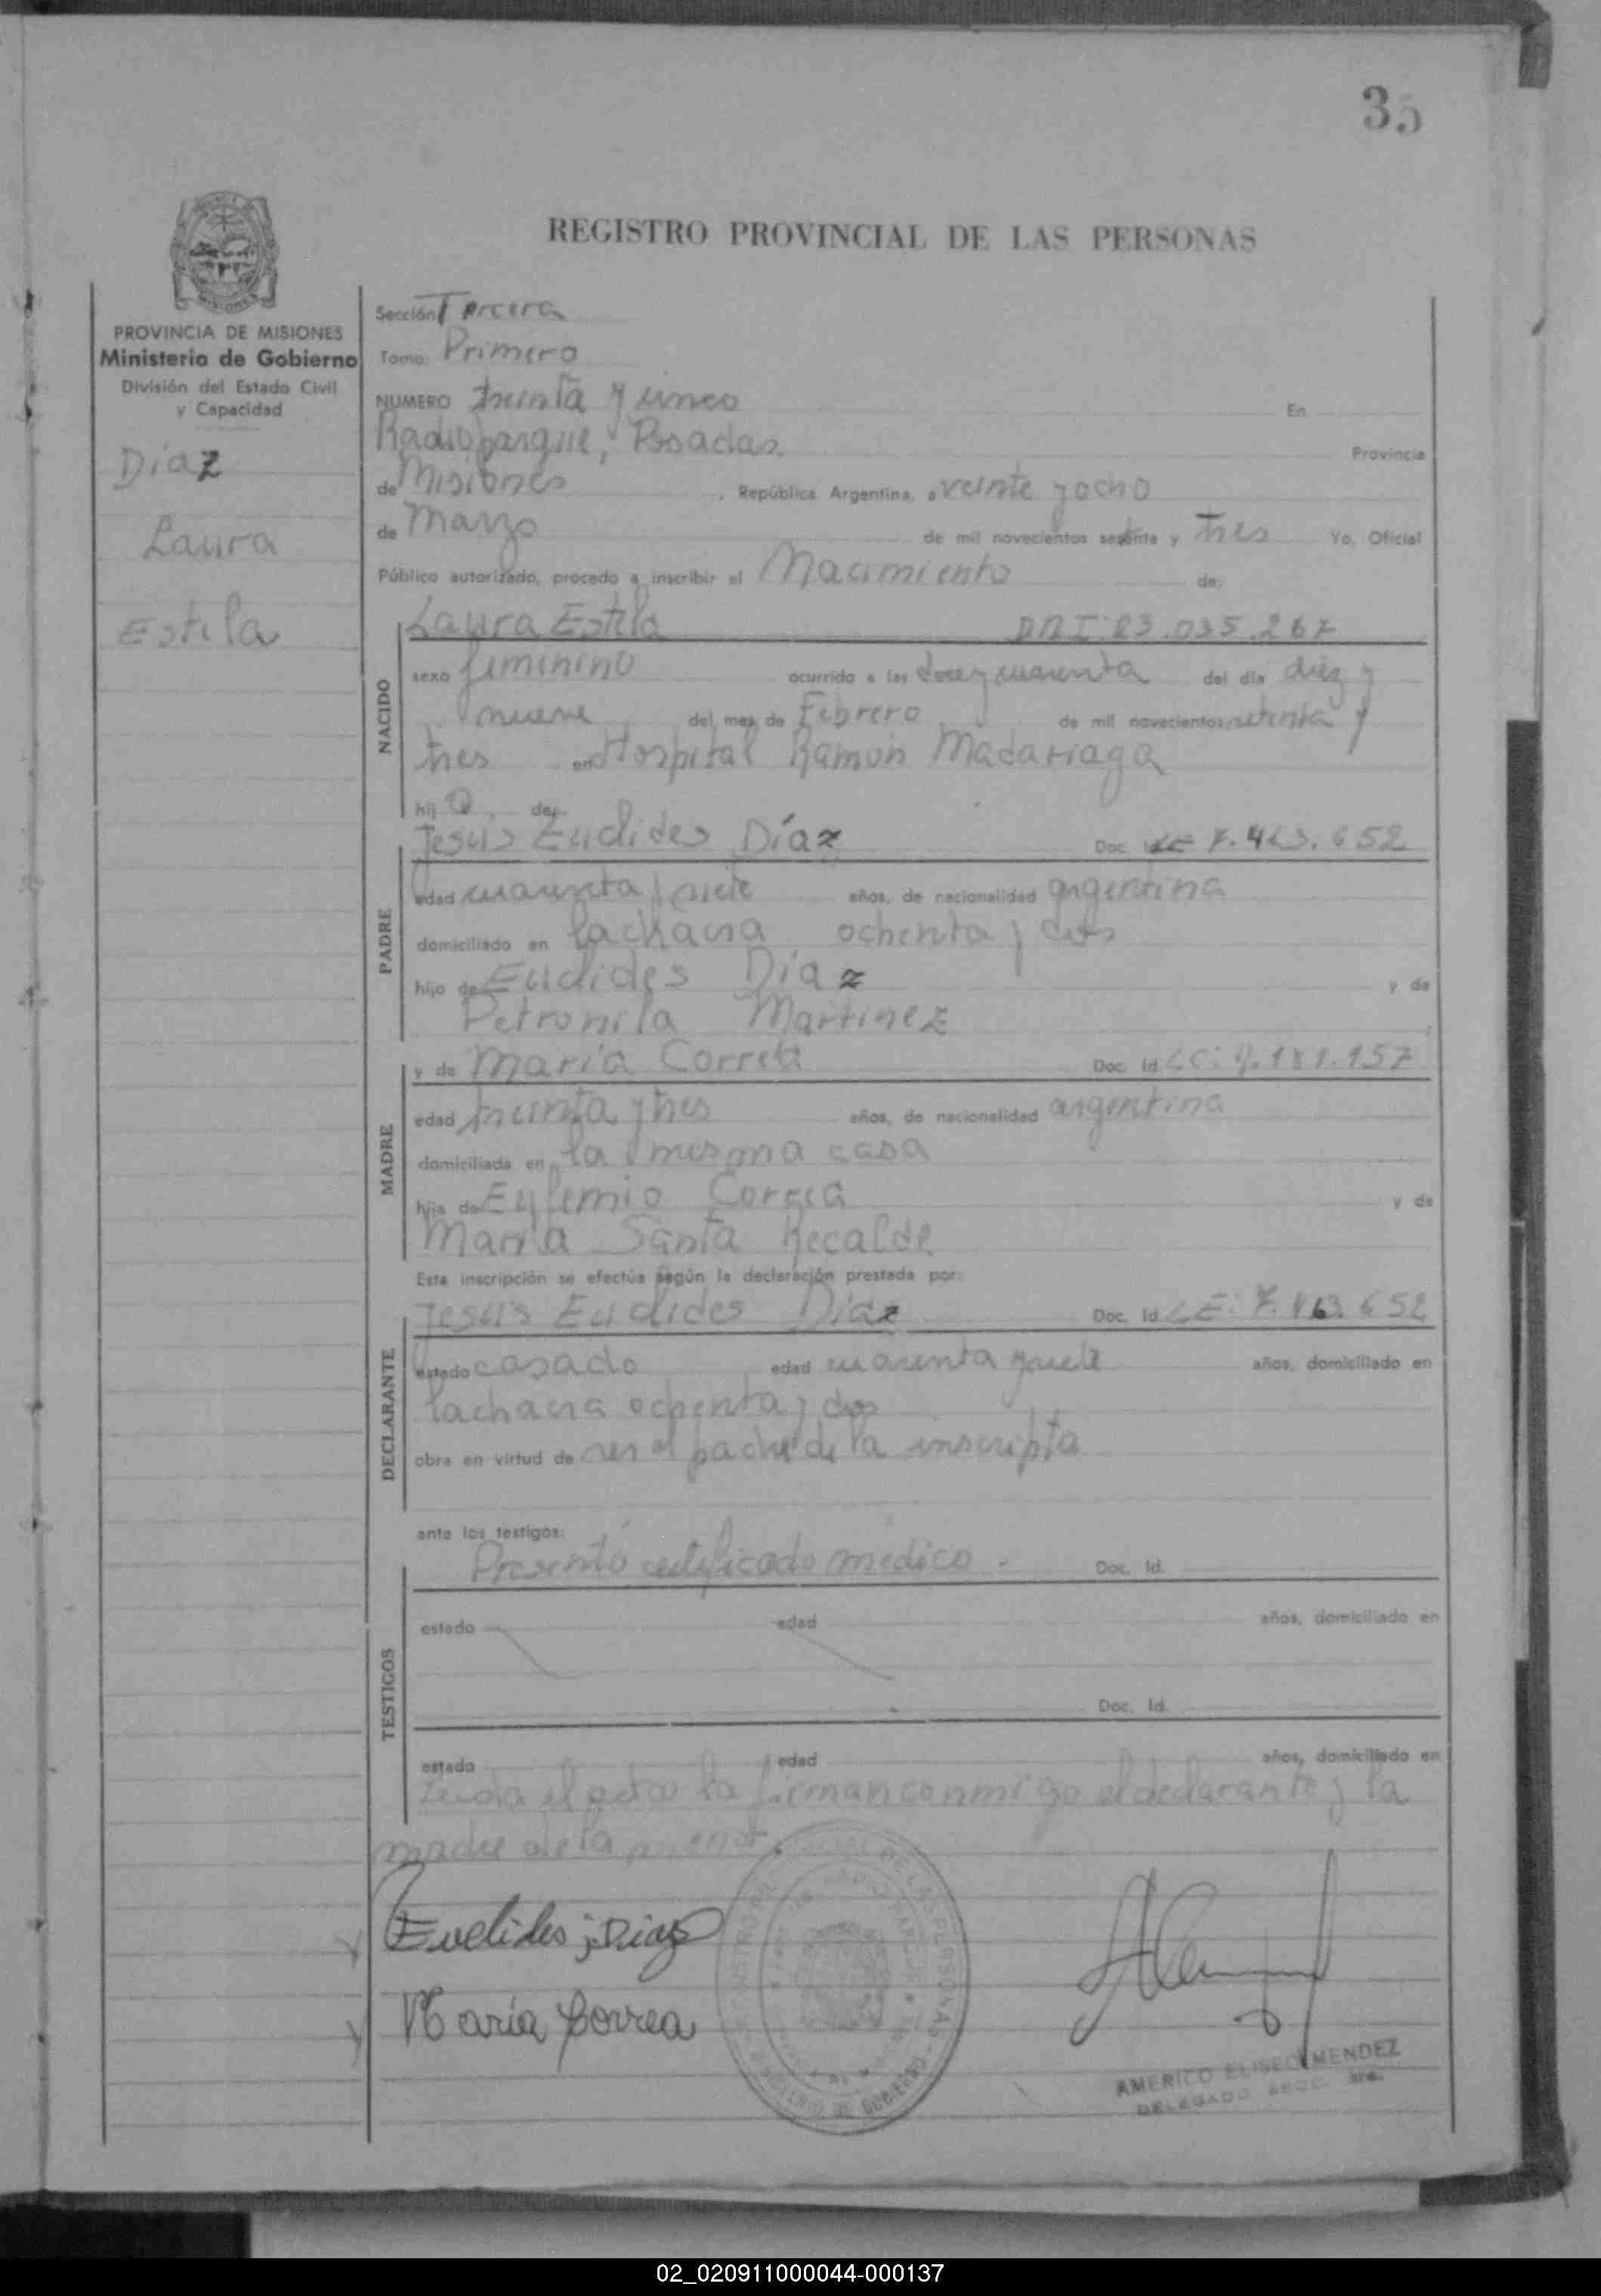 35
REGISTRO PROVINCIAL DE LAS PERSONAS
MISIONES
PROVINCIA DE MISIONES
Ministerio de Gobierno
División del Estado Civil
y Capacidad
Diaz
Laura
Estila
Sección Tercera
Tomo: Primero
NUMERO treinta y cinco En
Radioparque, Posadas Provincia
de Misiones, República Argentina, a veinte y ocho
de Marzo de mil novecientos setenta y tres Yo, Oficial
Público autorizado, procedo a inscribir el Nacimiento de:
NACIDO
Laura Estila DNI: 23.035.267
sexo femenino ocurrido a las doce y cuarenta del día diez y
nueve del mes de Febrero de mil novecientos setenta y
tres en Hospital Ramón Madariaga
hija de
PADRE
Jesús Euclides Díaz Doc. Id. LE 7.463.652
edad cuarenta y siete años, de nacionalidad argentina
domiciliado en la chacra ochenta y dos
hijo de Euclides Díaz y de
Petronila Martinez
MADRE
y de María Correa Doc. Id. LC: 9.181.157
edad treinta y tres años, de nacionalidad argentina
domiciliada en la misma casa
hija de Eufemio Correa y de
María Santa Recalde
Esta inscripción se efectúa según la declaración prestada por:
DECLARANTE
Jesús Euclides Díaz Doc. Id. LE: 7.463.652
estado casado edad cuarenta y siete años, domiciliado en
la chacra ochenta y dos
obra en virtud de ser el padre de la inscripta
ante los testigos:
TESTIGOS
Presentó certificado médico. Doc. Id.
estado edad años, domiciliado en
Doc. Id.
estado edad años, domiciliado en
Leida el acta la firman conmigo el declarante y la
madre de la menor.
Euclides J. Diaz
Maria Correa
AMERICO ELISEO MENDEZ
DELEGADO SECC. 3ra.
02_020911000044-000137